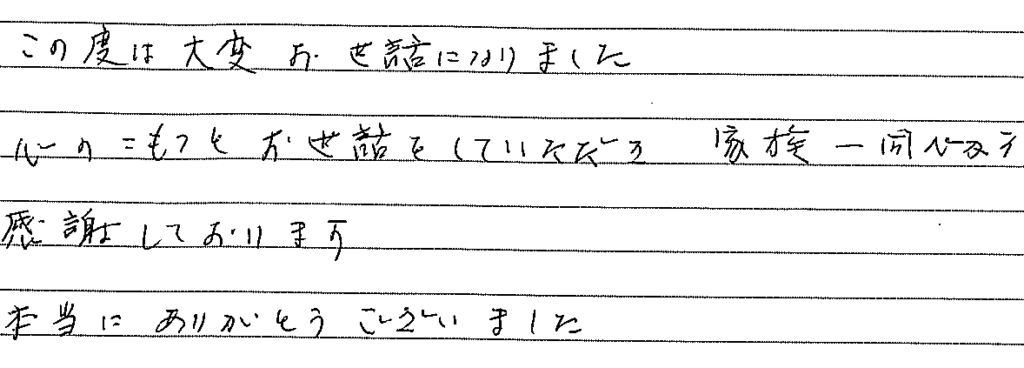 この度は大変お世話になりました
心のこもったお世話をしていただき 家族一同心より
感謝しております
本当にありがとうございました